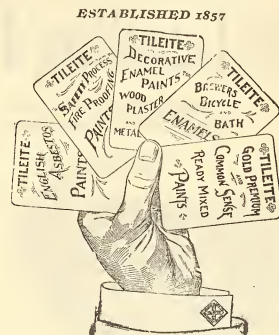 ESTABLISHED 1857
TILEITE
ENGLISH
ASBESTOS
PAINTS
TILEITE
SAFETY PROCESS
FIRE PROOFING
PAINTS
TILEITE
DECORATIVE
ENAMEL
PAINTS
WOOD
PLASTER
AND
METAL
TILEITE
BREWERS
BICYCLE
AND
BATH
ENAMELS
TILEITE
GOLD PREMIUM
AND
COMMON SENSE
READY MIXED
PAINTS